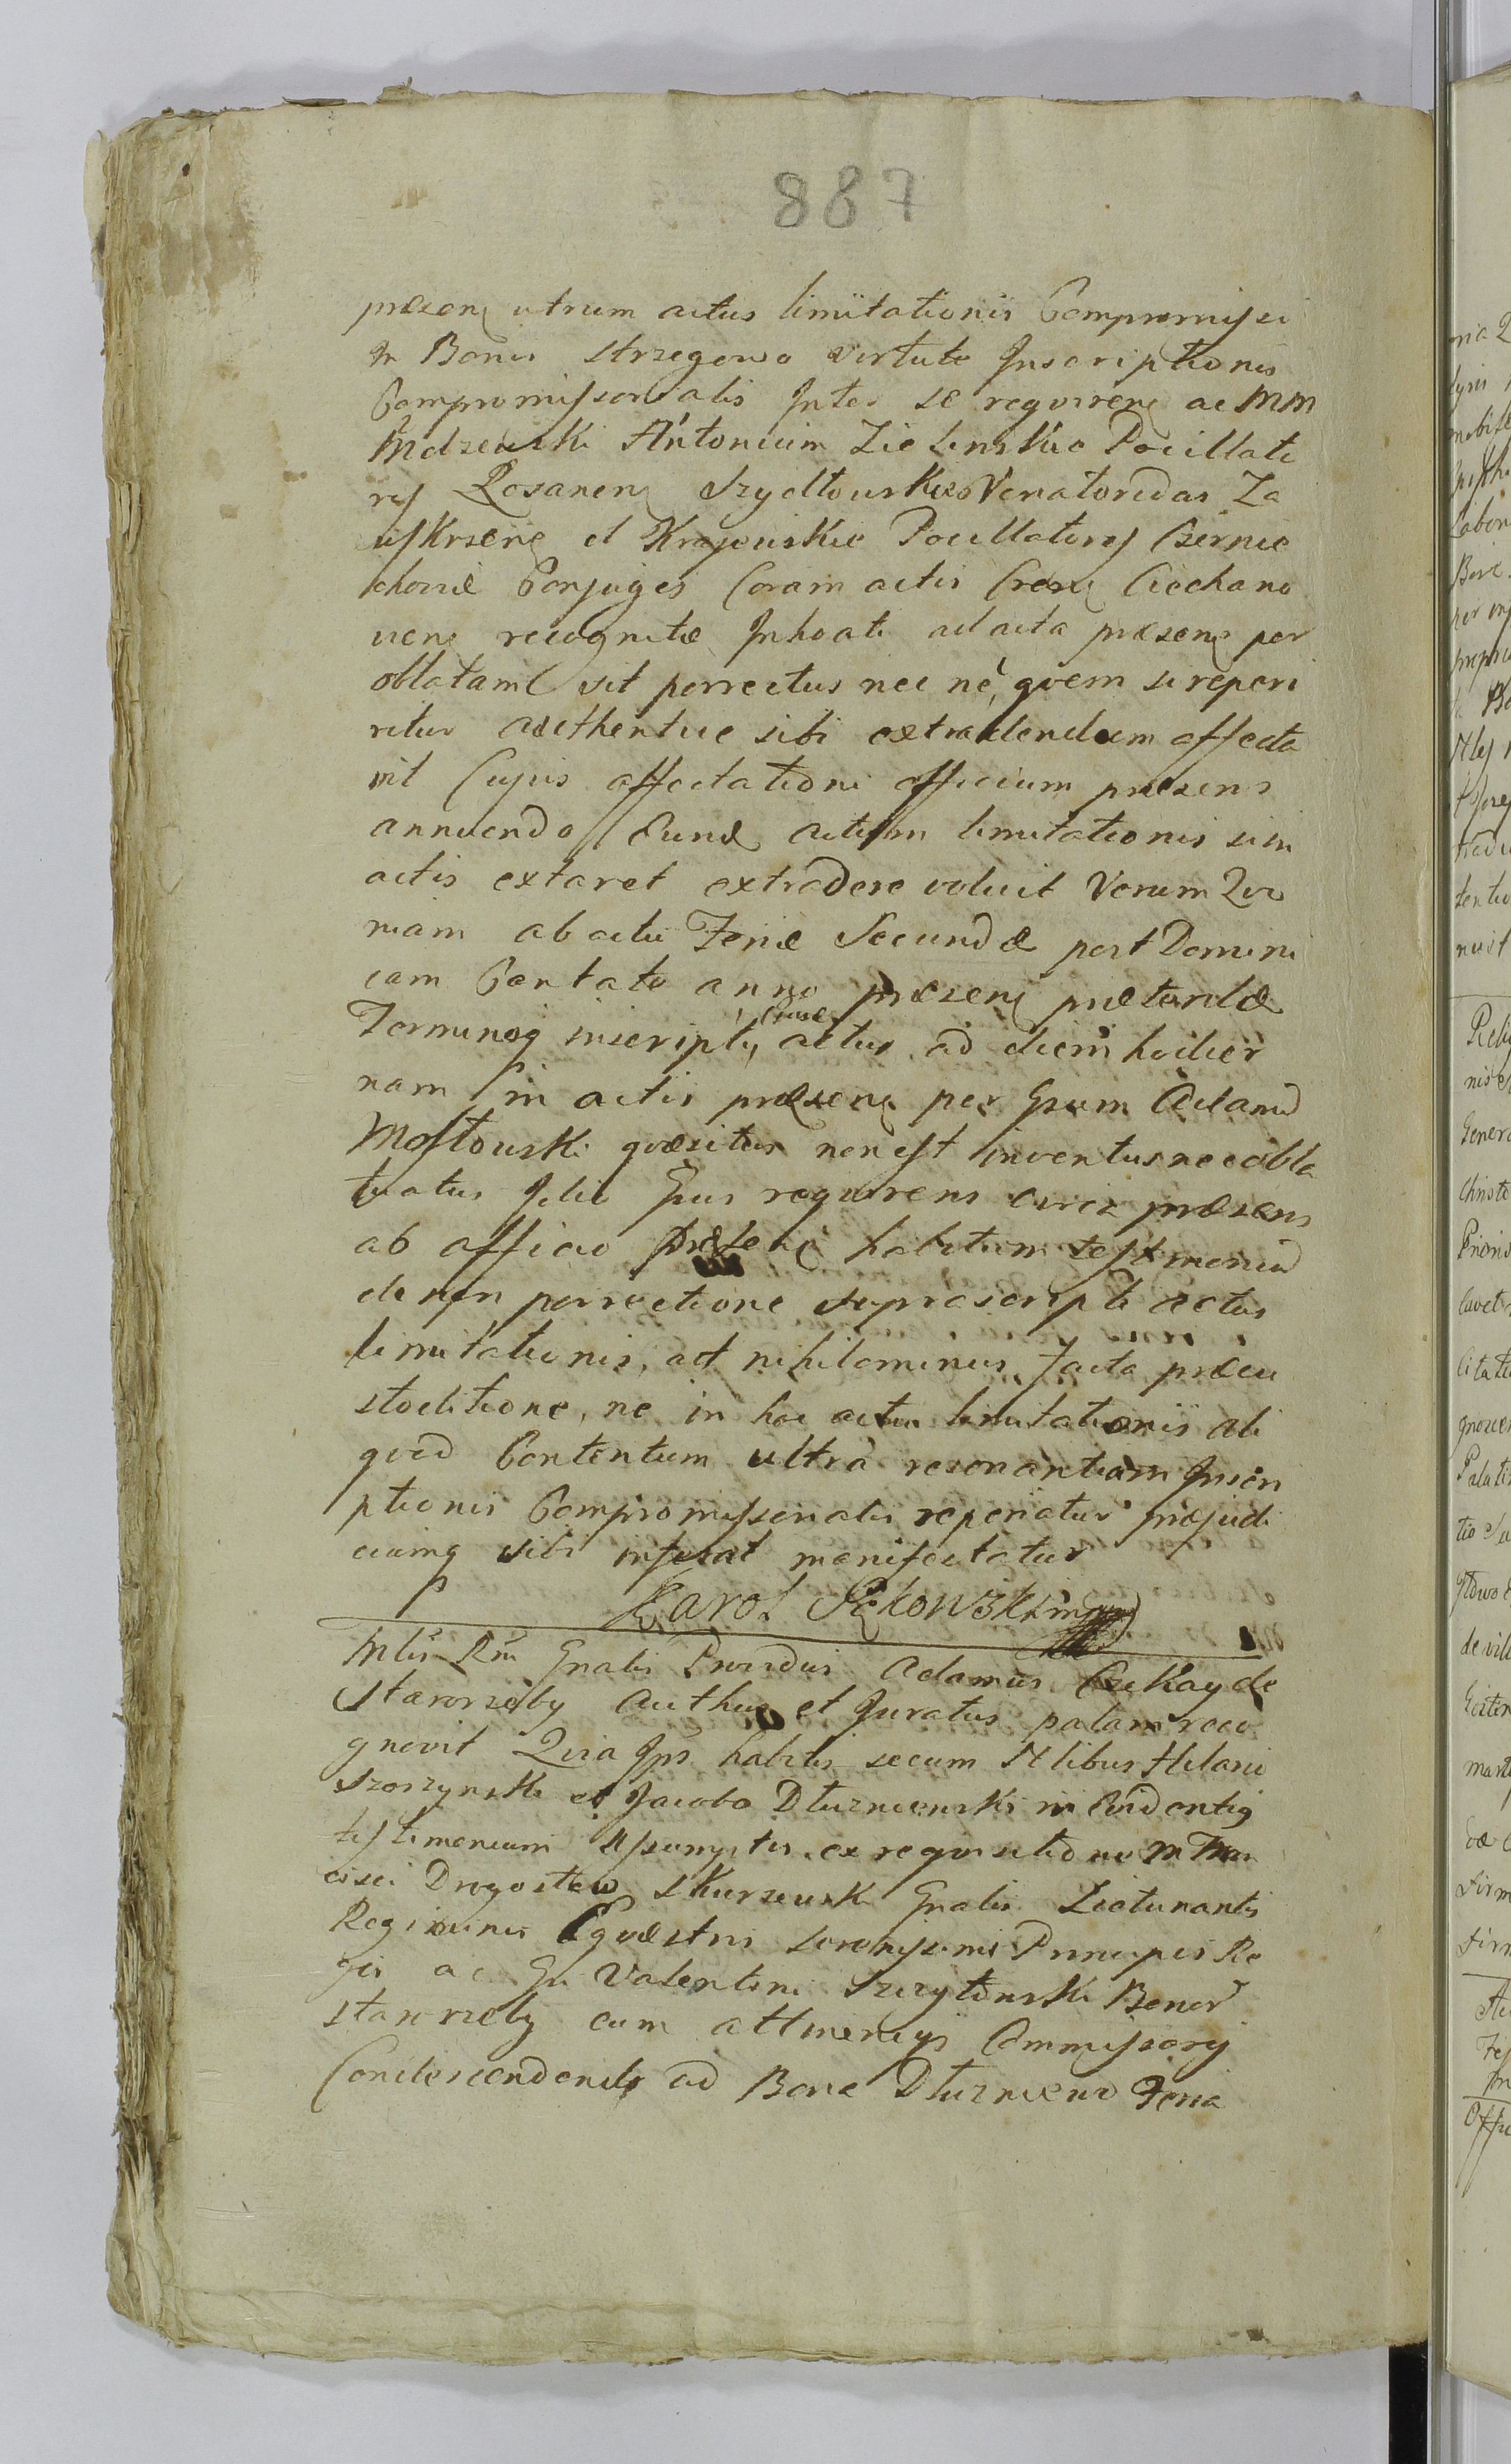 887
præsenꝭ utrum actus limitationis Compromissi
in Bonis Strzegowo virtute Inscriptionis
Compromissorialis Inter se requirenꝭ ac MM
Mdzewski Antonium Zielinskie Pocillato
res Rosanenꝭ Szydłowskie Venatoridas Za
wskrzenꝭ et Krajewskie Pocillatores Czernie
choviæ Conjuges Coram actis Crenꝭ Ciechano
vienꝭ recognitæ Inhoati ad acta præsenꝭ per
oblatam sit porrectus nec ne, quem si reperi
ritur authentice sibi extradendum affecta
vit Cujus affectationi officium præsens
annuendo Eund actum limitationis si in
actis extaret extradere voluit Verum Quo
niam ab actu Feriæ Secundæ post Domini
cam Cantate anno præsenꝭ præteritæ
Terminoq inscripti, actus ad diem hodier
nam in actis præsenꝭ per Gsum Adamū
Mostowski quæsitus non est inventus nec obla
tuatus Ideo Gsus requirens circa præsens
ab officio præsenꝭ habitum testimoniū
de non porrectione suprascripti actus
limitationis, at nihilominus facta præcu
stoditione, ne in hoc actu limitationis ali
quod Contentum ultra resonantiam Inscri
ptionis Compromissorialis reperiatur præjudi
ciumq sibi inferat manifestatur
Karol Rękowski mp
Mtis Rm Gnalis Providus Adamus Czekay de
Starorzeby Authus et Juratus palam reco
gnovit Quia Ips habitis secum Nlibus Hilario
Szoszynski et Jacobo Dłuzniewski in Evidentiq
testimonium assumptis ex requisitione M Fran
cisci Drogosław Skurzewski Gnalis Lietunantis
Regiminis Equestris Serenissimi Principis Re
gis ac G Valentini Szczytinski Bonor
Starorzeby cum attinenciis Commissorij
Condescendendo ad Bona Dłuzniewo Feria